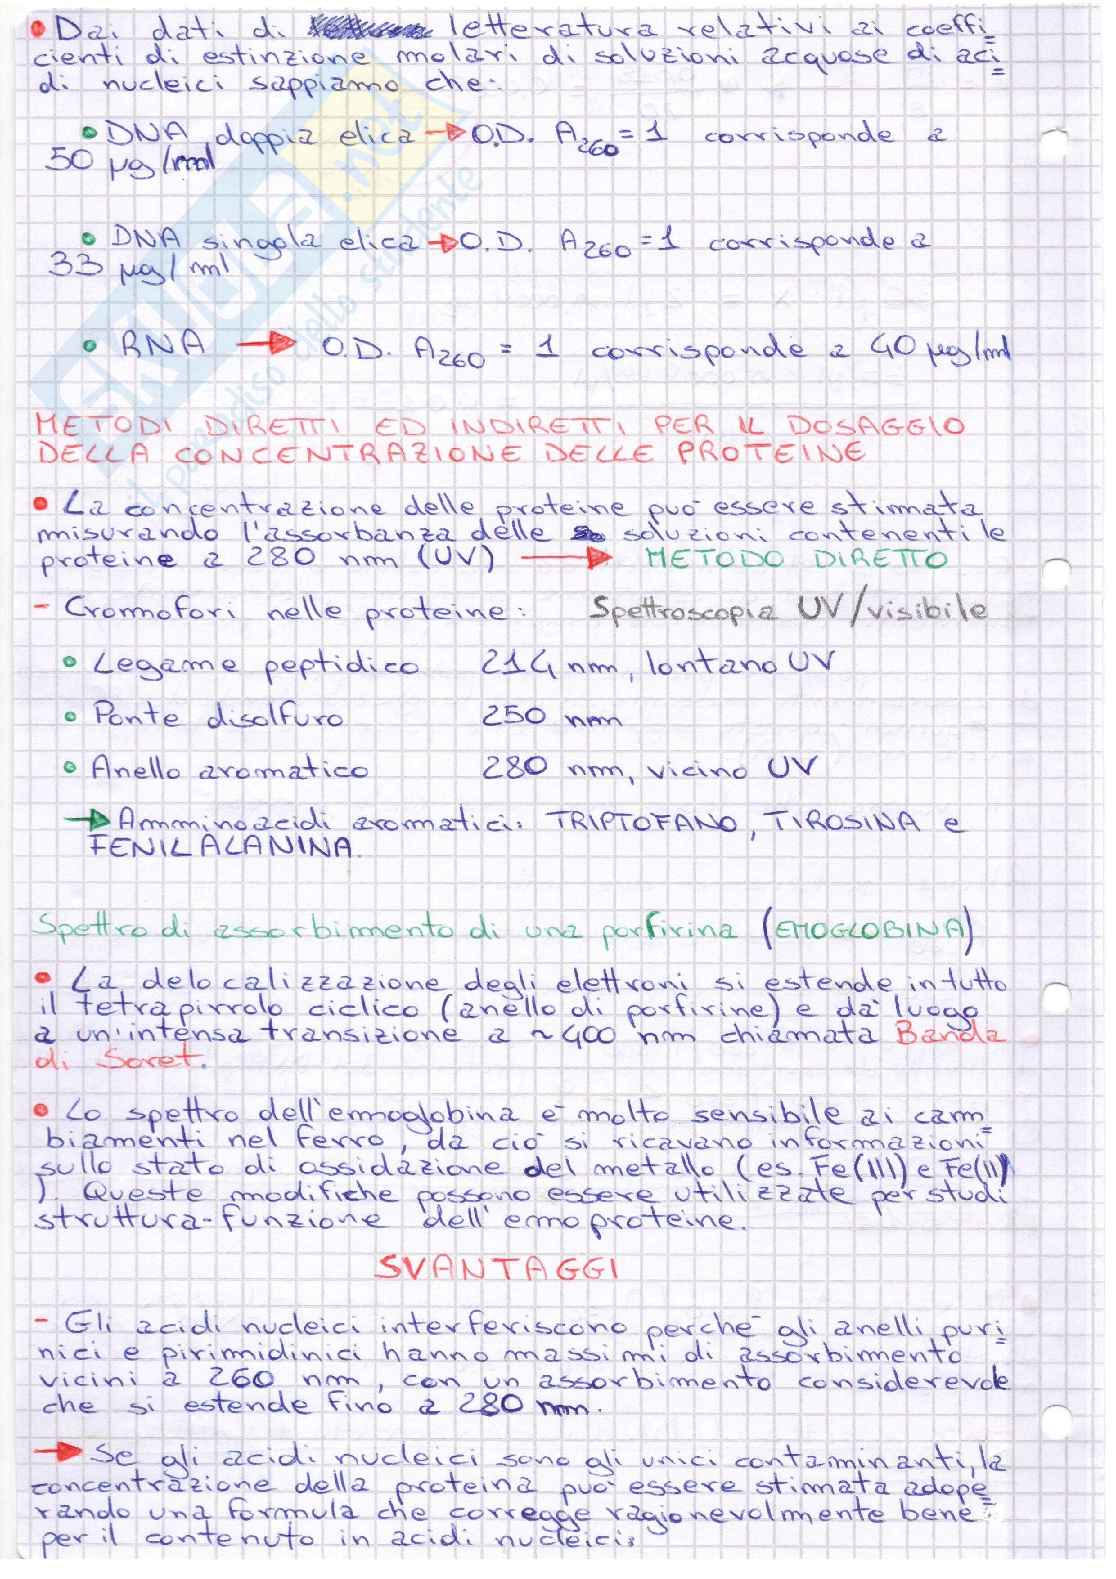 • Dai dati di letteratura relativi ai coeffi=
cienti di estinzione molari di soluzioni acquose di aci=
di nucleici sappiamo che:
• DNA doppia elica → O.D. A260 = 1 corrisponde a
50 µg/ml
• DNA singola elica → O.D. A260 = 1 corrisponde a
33 µg/ml
• RNA → O.D. A260 = 1 corrisponde a 40 µg/ml
METODI DIRETTI ED INDIRETTI PER IL DOSAGGIO
DELLA CONCENTRAZIONE DELLE PROTEINE
• La concentrazione delle proteine può essere stimata
misurando l'assorbanza delle soluzioni contenenti le
proteine a 280 nm (UV) → METODO DIRETTO
- Cromofori nelle proteine: Spettroscopia UV/visibile
• Legame peptidico 214 nm, lontano UV
• Ponte disolfuro 250 nm
• Anello aromatico 280 nm, vicino UV
→ Amminoacidi aromatici: TRIPTOFANO, TIROSINA e
FENILALANINA.
Spettro di assorbimento di una porfirina (EMOGLOBINA)
• La delocalizzazione degli elettroni si estende in tutto
il tetrapirrolo ciclico (anello di porfirine) e dà luogo
a un'intensa transizione a ~400 nm chiamata Banda
di Soret.
• Lo spettro dell'emoglobina è molto sensibile ai cam=
biamenti nel ferro, da ciò si ricavano informazioni
sullo stato di ossidazione del metallo (es. Fe(III) e Fe(II)
). Queste modifiche possono essere utilizzate per studi
struttura-funzione dell'emoproteine.
SVANTAGGI
- Gli acidi nucleici interferiscono perchè gli anelli puri=
nici e pirimidinici hanno massimi di assorbimento
vicini a 260 nm, con un assorbimento considerevole
che si estende fino a 280 nm.
→ Se gli acidi nucleici sono gli unici contaminanti, la
concentrazione della proteina può essere stimata adope=
rando una formula che corregge ragionevolmente bene
per il contenuto in acidi nucleici:
SKUOLA.net
il paradiso dello studente